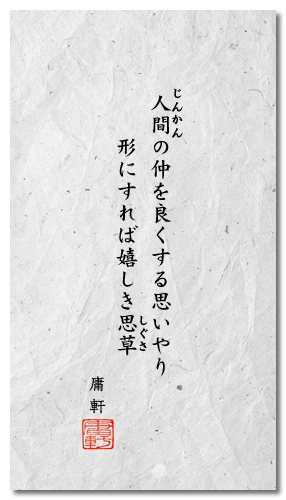 人間の仲を良くする思いやり
じんかん
形にすれば嬉しき思草
しぐさ
庸軒
庸軒